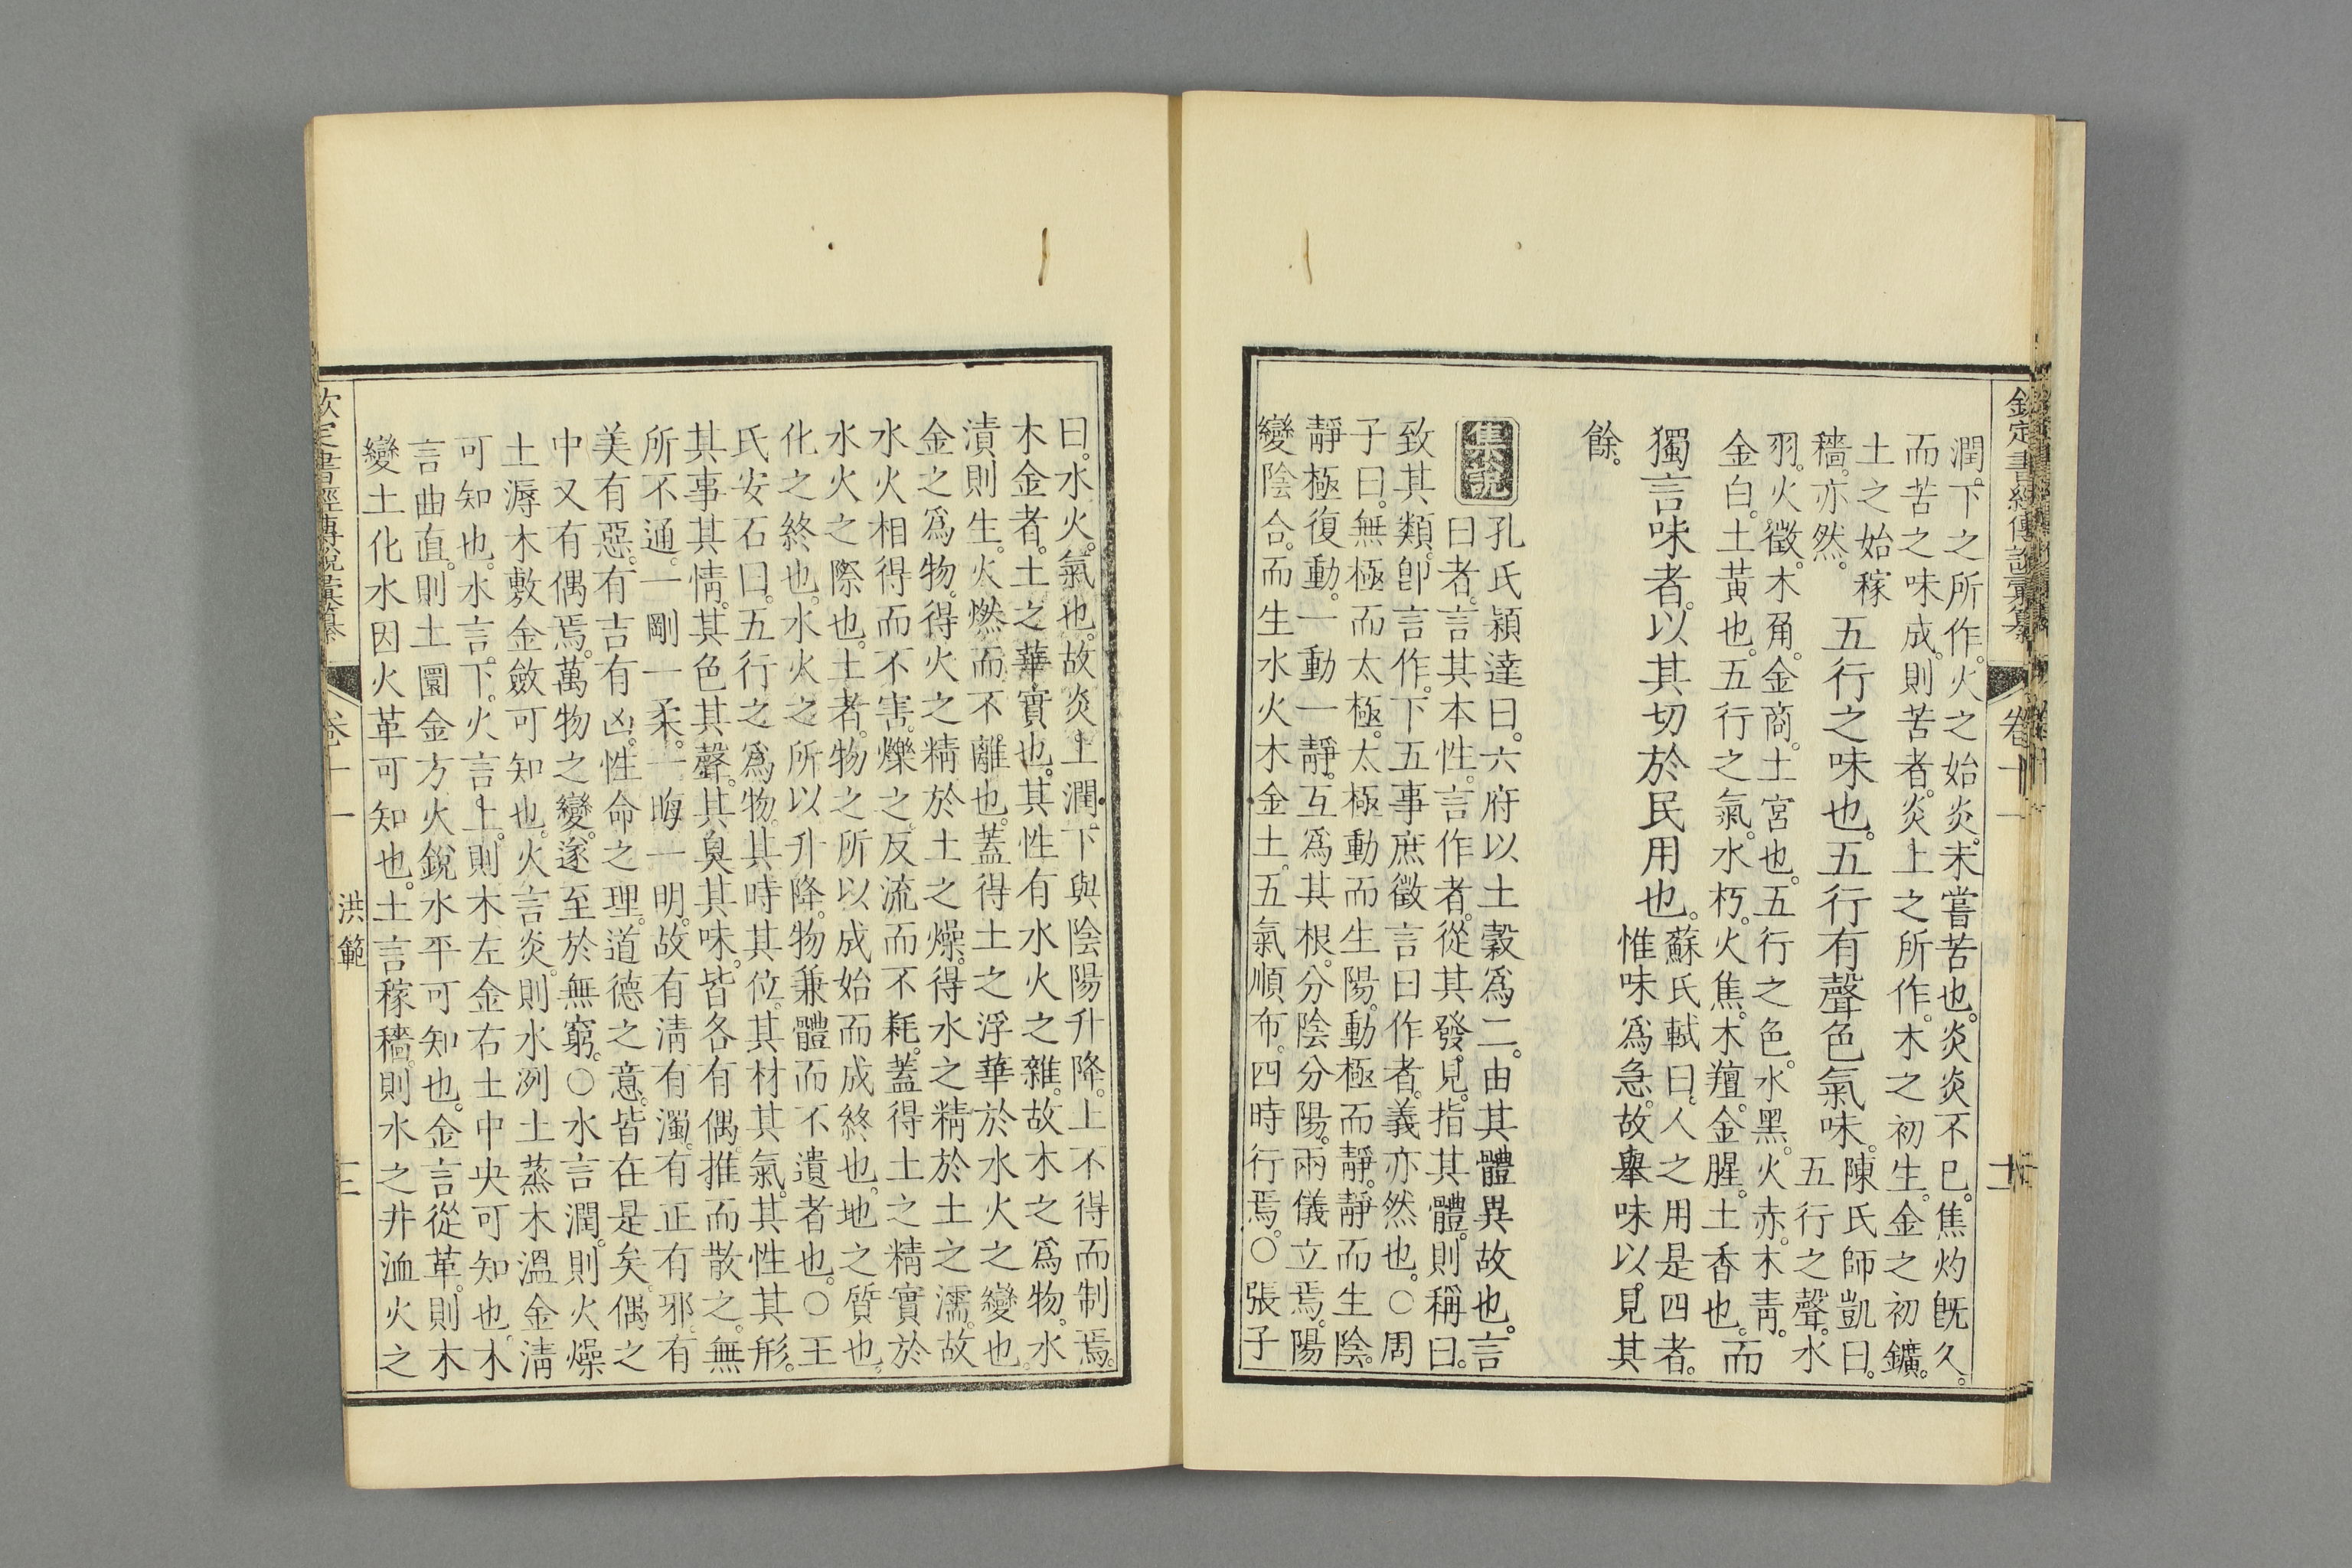 欽定書經傳說彙纂 卷十一
潤。下之所作。火之始炎。未嘗苦也。炎炎不已。焦灼旣久。
而苦之味成。則苦者。炎上之所作。木之初生。金之初鑛。
土之始稼
穡。亦然。
五行之味也。五行有聲色氣味。
陳氏師凱曰。
五行之聲。水
羽。火徵。木角。金商。土宮也。五行之色。水黑。火赤。木靑。
金白。土黃也。五行之氣。水朽。火焦。木羶。金腥。土香也。
而
獨言味者。以其切於民用也。
蘇氏軾曰。人之用是四者。
惟味爲急。故舉味以見其
餘。
集說
孔氏穎達曰。六府以土穀爲二。由其體異故也。言
曰者。言其本性。言作者。從其發見。指其體。則稱曰。
致其類。卽言作。下五事庶徵言曰作者。義亦然也。○周
子曰。無極而太極。太極動而生陽。動極而靜。靜而生陰。
靜極復動。一動一靜。互爲其根。分陰分陽。兩儀立焉。陽
變陰合。而生水火木金土。五氣順布。四時行焉。○張子
曰。水火。氣也。故炎上潤下。與陰陽升降。上不得而制焉。
木金者。土之華實也。其性有水火之雜。故木之爲物。水
漬則生。火燃而不離也。蓋得土之浮華於水火之變也。
金之爲物。得火之精於土之燥。得水之精於土之濡。故
水火相得而不害。爍之。反流而不耗。蓋得土之精實於
水火之際也。土者。物之所以成始而成終也。地之質也。
化之終也。水火之所以升降。物兼體而不遺者也。○王
氏安石曰。五行之爲物。其時其位。其材其氣。其性其形。
其事其情。其色其聲。其臭其味。皆各有偶。推而散之。無
所不通。一剛一柔。一晦一明。故有淸有濁。有正有邪。有
美有惡。有吉有凶。性命之理。道德之意。皆在是矣。偶之
中又有偶焉。萬物之變。遂至於無窮。○水言潤。則火燥
土溽木敷金斂可知也。火言炎。則水冽土蒸木溫金淸
可知也。水言下。火言上。則木左金右土中央可知也。木
言曲直。則土圜金方火銳水平可知也。金言從革。則木
變土化水因火革可知也。土言稼穡。則水之井洫火之
欽定書經傳說彙纂 卷十一 洪範